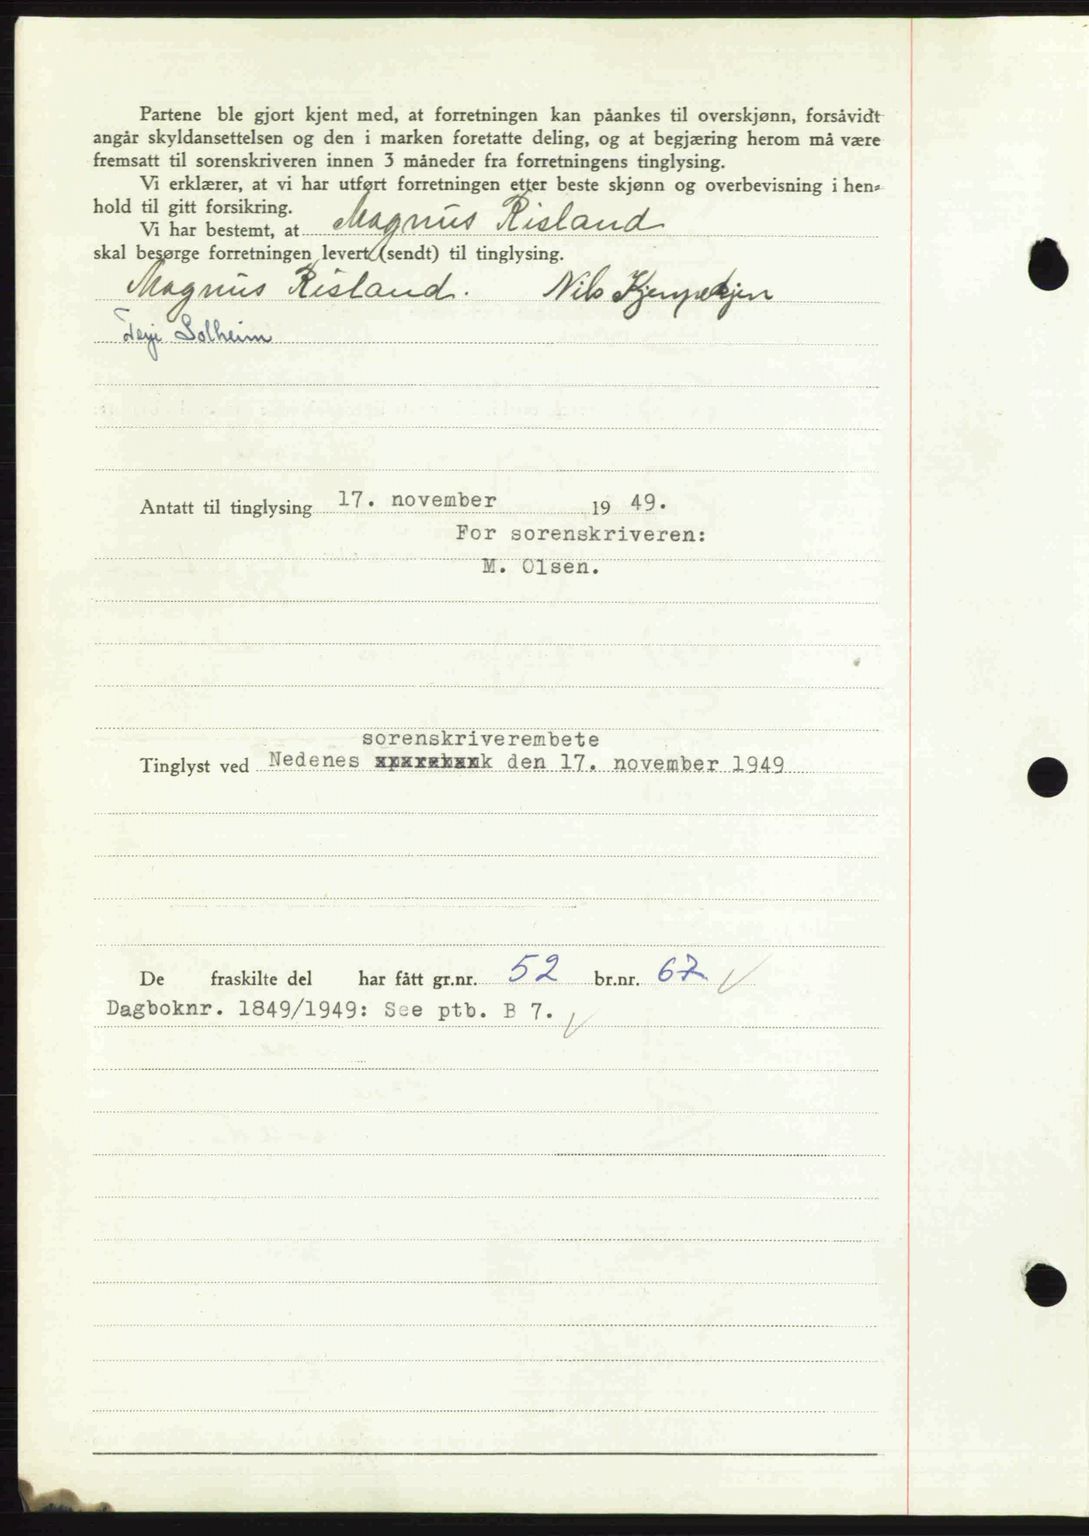 Partene ble gjort kjent med, at forretningen kan påankes til overskjønn, forsåvidt
angår skyldansettelsen og den i marken foretatte deling, og at begjæring herom må være
fremsatt til sorenskriveren innen 3 måneder fra forretningens tinglysing.
Vi erklærer, at vi har utført forretningen etter beste skjønn og overbevisning i hen-
hold til gitt forsikring.
Vi har bestemt, at Magnus Risland
skal besørge forretningen levert (sendt) til tinglysing.
Magnus Risland. Nils
Solheim
Antatt til tinglysing 17. november 19 49.
For sorenskriveren:
M. Olsen.
sorenskriverembete
Tinglyst ved Nedenes den 17. november 1949
De fraskilte del har fått gr.nr. 52 br.nr. 67
Dagboknr. 1849/1949: See ptb. B 7.